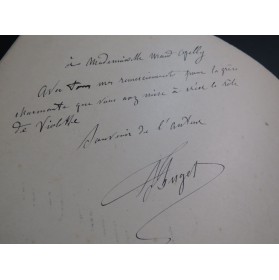 à Mademoiselle Maud
Avec tous mes remerciements pour la grâce
charmante que vous avez mise à créer le rôle
de Violette
Souvenir de l'auteur